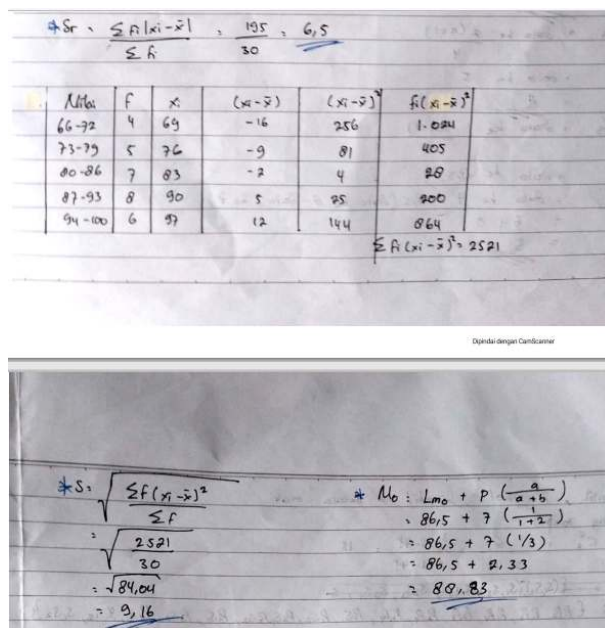 * Sr = Σ fi |xi - x̄| / Σ fi = 195 / 30 = 6,5
Nilai F xi (xi - x̄) (xi - x̄)² fi (xi - x̄)²
66-72 4 69 -16 256 1.024
73-79 5 76 -9 81 405
80-86 7 83 -2 4 28
87-93 8 90 5 25 200
94-100 6 97 12 144 864
Σ fi (xi - x̄)² = 2521
Dipindai dengan CamScanner
* S = √ Σ f (xi - x̄)² / Σ f
= √ 2521 / 30
= √84,04
= 9,16
* Mo : Lmo + P (a / a + b)
= 86,5 + 7 (1 / 1 + 2)
= 86,5 + 7 (1/3)
= 86,5 + 2,33
= 88,83